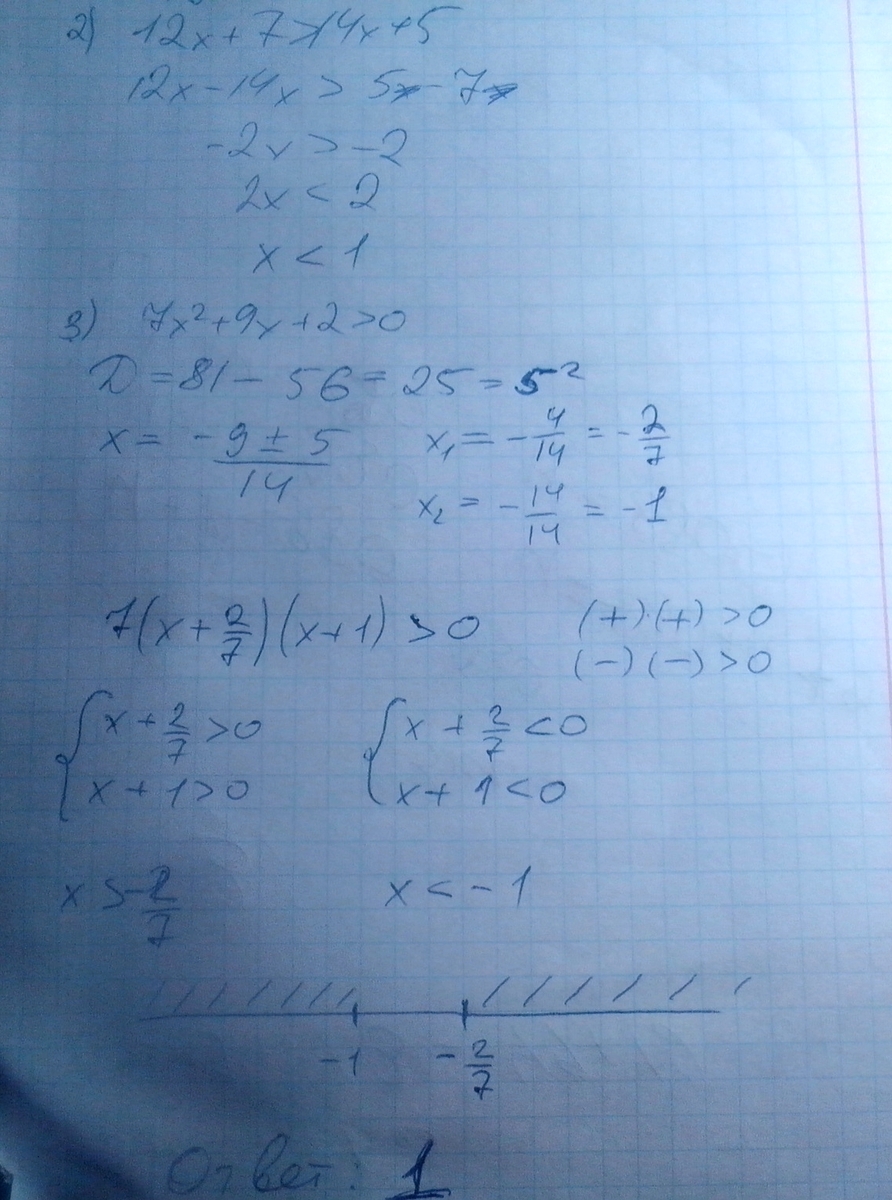 2) 12x + 7 > 14x + 5
12x - 14x > 5 - 7
-2x > -2
2x < 2
x < 1
3) 7x² + 9x + 2 > 0
D = 81 - 56 = 25 = 5²
x = (-9 ± 5)/14 x₁ = -4/14 = -2/7
x₂ = -14/14 = -1
7(x + 2/7)(x + 1) > 0 (+)·(+) > 0
(-)(-) > 0
{ x + 2/7 > 0 { x + 2/7 < 0
x + 1 > 0 x + 1 < 0
x > -2/7 x < -1
-1 -2/7
Ответ: 1